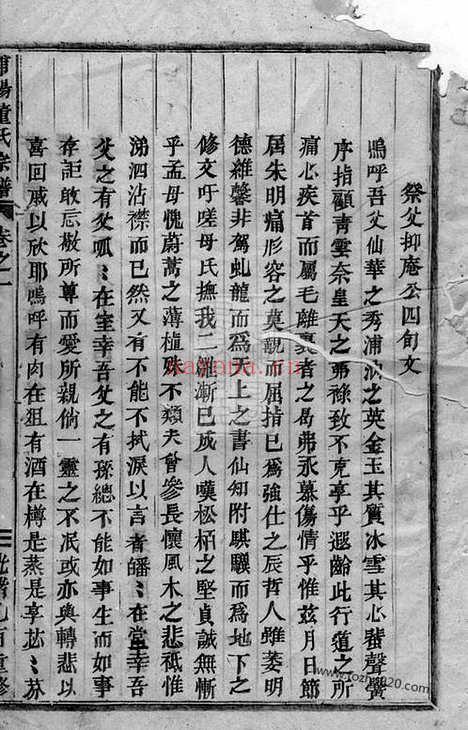 祭父抑庵公四旬文
嗚呼吾父仙華之秀浦汭之英金玉其質冰雪其心蜚聲黌
序指顧青雲奈皇天之弗祿致不克享乎遐齡此行道之所
痛心疾首而屬毛離裏者之曷弗永慕傷情乎惟茲月日節
屆朱明痛形容之莫覩而屈指已為強仕之辰哲人雖萎明
德維馨非駕虬龍而為天上之書仙知附騏驥而為地下之
修文吁嗟母氏撫我二雛漸已成人嘆松栢之堅貞誠無慚
乎孟母愧蔚蒿之薄植殊不類夫曾參長懷風木之悲祗惟
涕泗沾襟而已然又有不能不拭淚以言者皤〻在堂幸吾
父之有父呱〻在室幸吾父之有孫總不能如事生而如事
存詎敢忘敬所尊而愛所親倘一靈之不泯或亦與轉悲以
喜回戚以欣耶嗚呼有肉在俎有酒在樽是蒸是享苾〻芬
浦陽董氏宗譜
卷之一